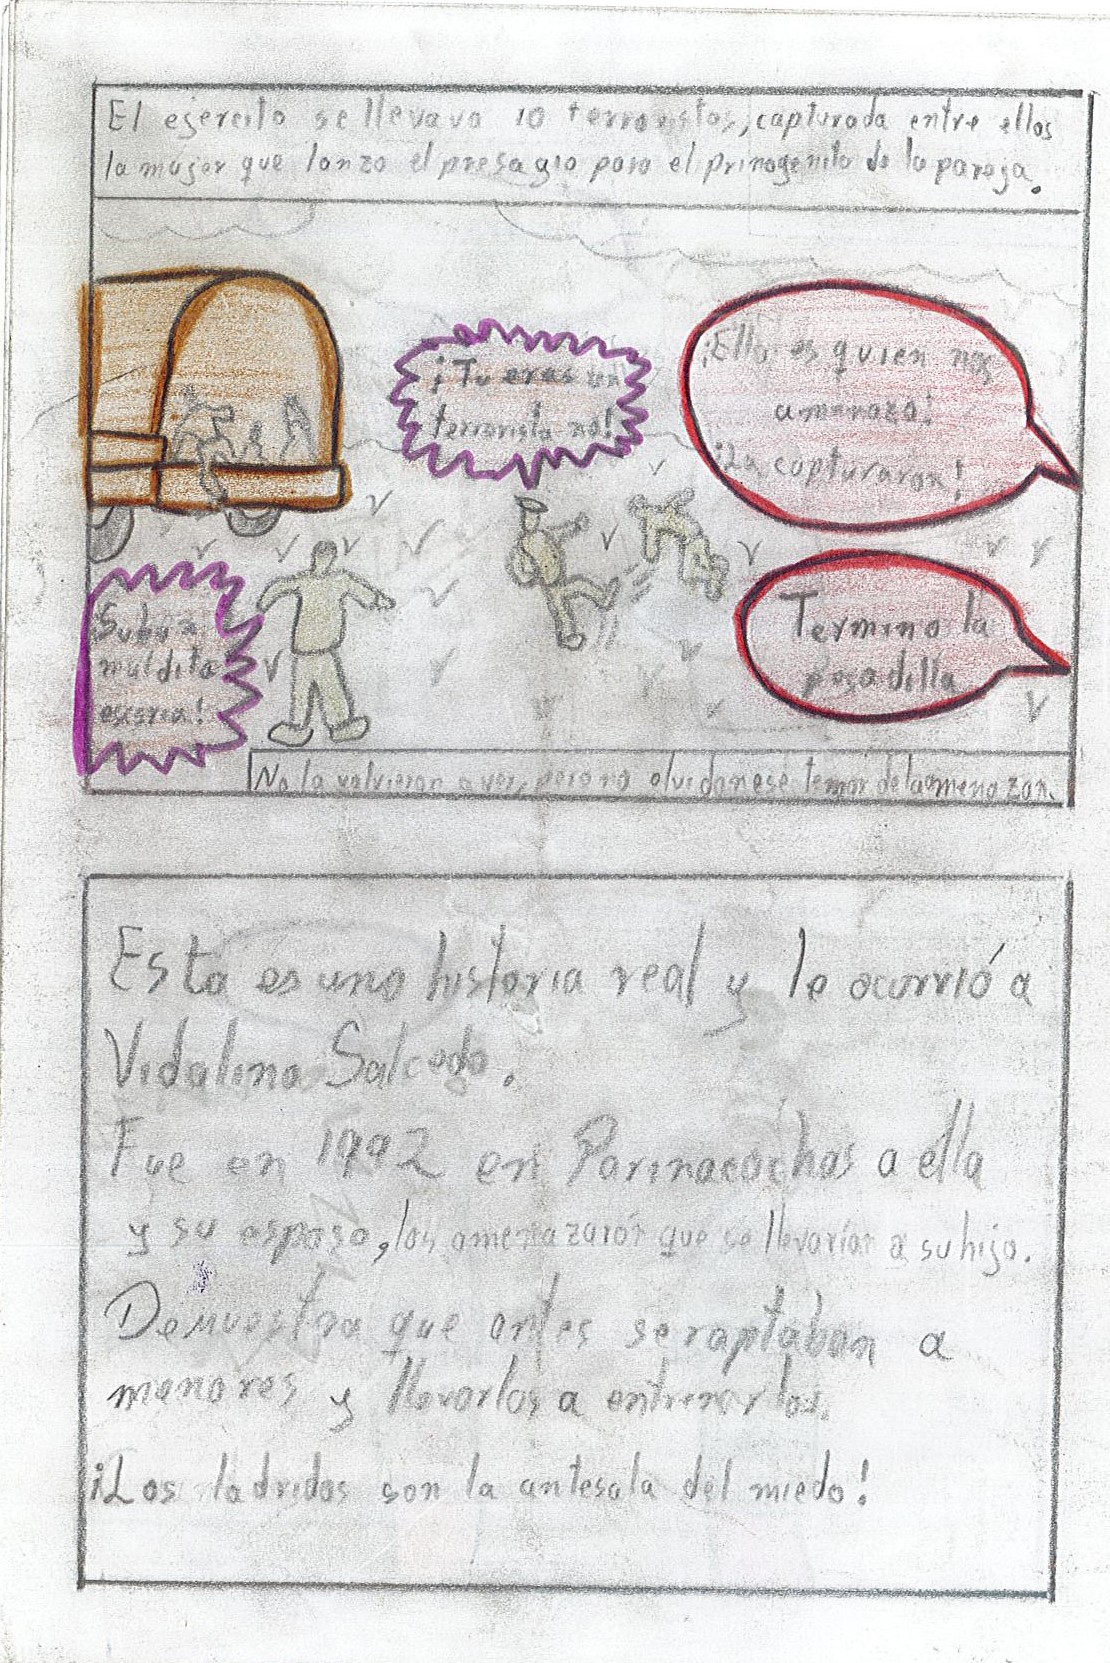 El ejercito se llevava 10 terroristas, capturada entre ellos
la mujer que lanzo el presagio para el primogenito de la pareja.
¡Tu eres un
terrorista no!
¡Ella es quien nos
amenazo!
¡La capturaron!
Suban
maldita
escoria!
Termino la
pesadilla
No la volvieron a ver, pero no olvidan ese temor de la amenazan.
Esta es una historia real y le ocurrió a
Vidalina Salcedo.
Fue en 1992 en Parinacochas a ella
y su esposo, los amenazarón que se llevarían a su hijo.
Demuestra que antes se raptaban a
menores y llevarlos a entrenarlos.
¡Los ladridos son la antesala del miedo!